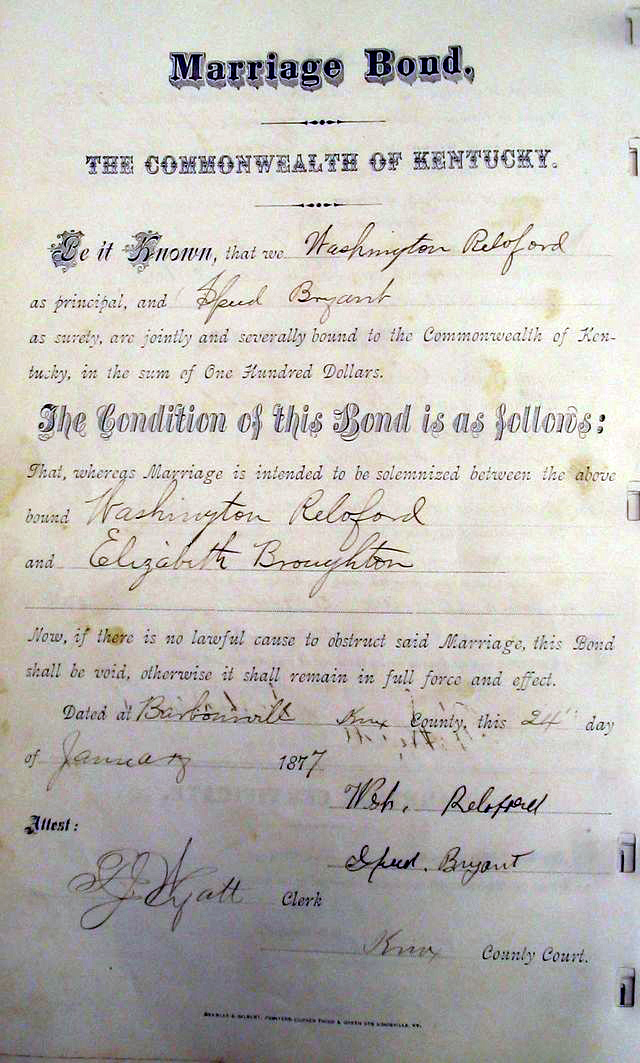 Marriage Bond.
THE COMMONWEALTH OF KENTUCKY.
Be it Known, that we Washington Reloford
as principal, and Speed Bryant
as surety, are jointly and severally bound to the Commonwealth of Ken-
tucky, in the sum of One Hundred Dollars.
The Condition of this Bond is as follows:
That, whereas Marriage is intended to be solemnized between the above
bound Washington Reloford
and Elizabeth Broughton
Now, if there is no lawful cause to obstruct said Marriage, this Bond
shall be void, otherwise it shall remain in full force and effect.
Dated at Barbourvill Knox County, this 24 day
of January 1877
Wsh. Reloford
Attest:
Speed. Bryant
Wyatt Clerk
Knox County Court.
BRADLEY & GILBERT, PRINTERS CORNER THIRD & GREEN STS LOUISVILLE, KY.